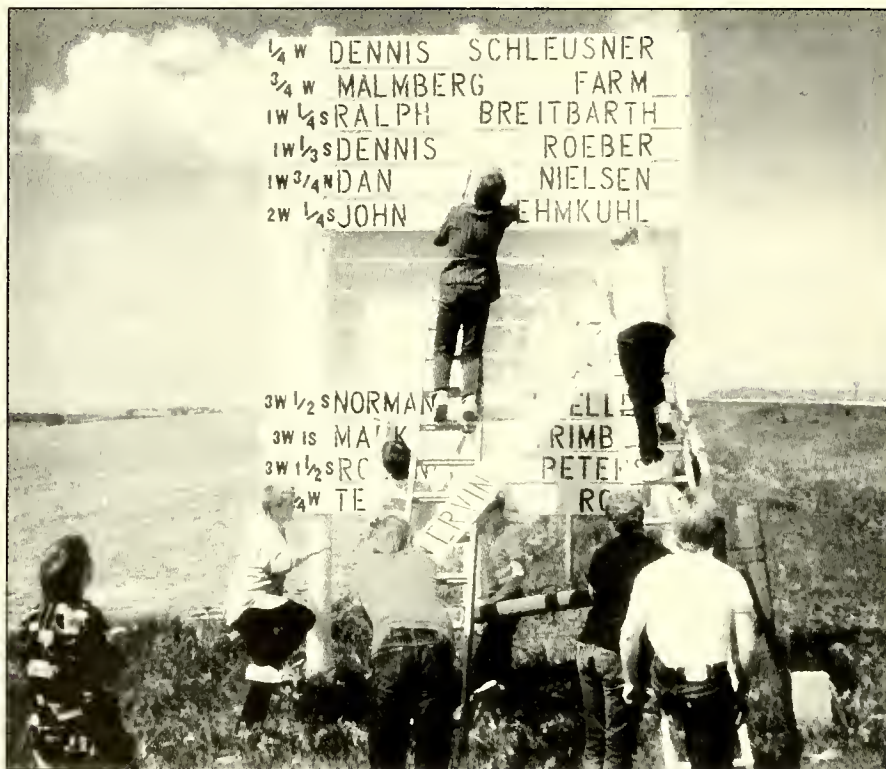 1/4 W DENNIS SCHLEUSNER
3/4 W MALMBERG FARM
1W 1/4 S RALPH BREITBARTH
1W 1/3 S DENNIS ROEBER
1W 3/4 N DAN NIELSEN
2W 1/4 S JOHN EHMKUHL
3W 1/2 S NORMAN
3W 1S
3W 1 1/2 S
ERVIN